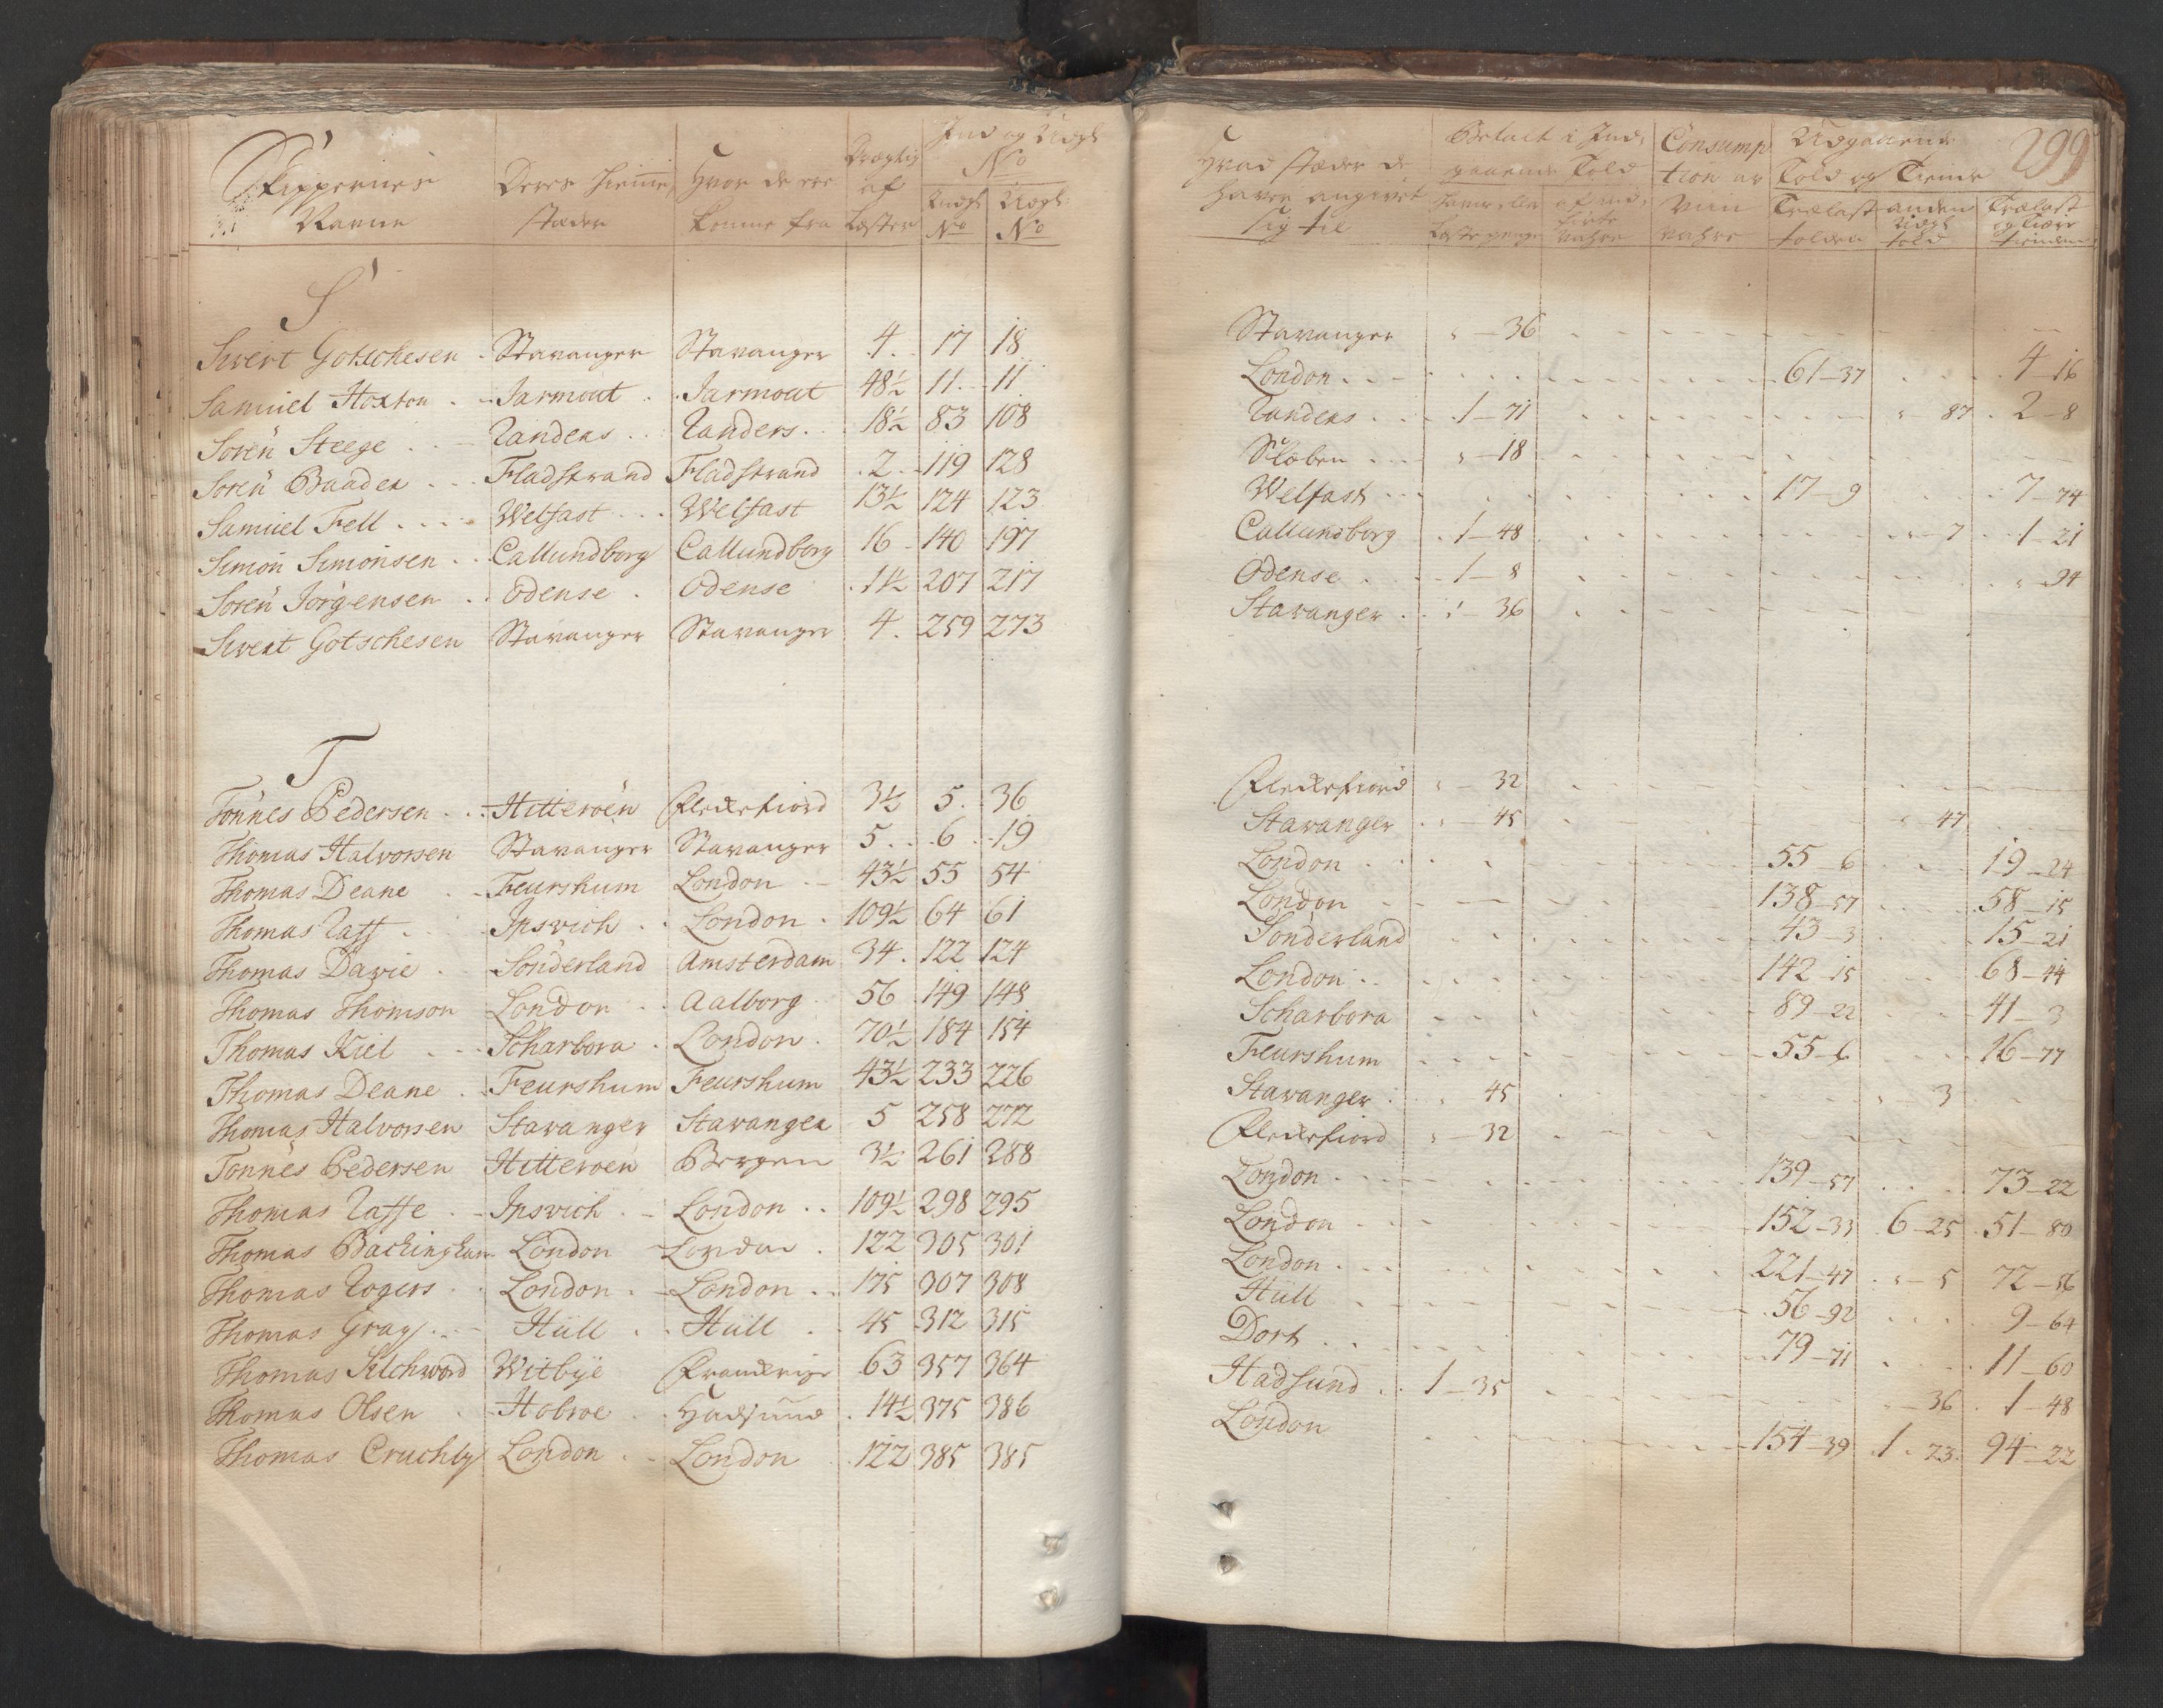 Skippernes Navne
Deres Hiemme stæder
Hvor de ere komne fra
Drægtig af Læster
Ind og Udg: No
Indg: No
Udg: No
S
Sivert Gotschesen . Stavanger Stavanger 4. 17 18
Samuel Hoxton . Jarmout . Jarmout 48½ 11 11
Soren Steege . Randers . Randers . 18½ 83 108
Soren Baader . Fladstrand Fladstrand . 2 . 119 128
Samuel Fell . Welfast . Welfast 13½ 124 123
Simon Simonsen . Callundborg Callundborg 16 140 197
Soren Jörgensen . Odense . Odense . 11½ 207 217
Sivert Gotschesen Stavanger Stavanger 4. 259 273
T
Tönnes Pedersen . Hitteroen Fleckefiord 3½ 5. 36
Thomas Halvorsen Stavanger Stavanger 5 . 6 . 19
Thomas Deane . Feurshum London 43½ 55 54
Thomas Raff . Ipswich . London . 109½ 64 61
Thomas Davie . Sönderland Amsterdam 34. 122 124
Thomas Thomson London . Aalborg 56 149 148
Thomas Kiel . Scharbora . London . 70½ 184 154
Thomas Deane . Feurshum Feurshum 43½ 233 226
Thomas Halvorsen Stavanger Stavanger 5 258 272
Tonnes Pedersen Hitteroen Bergen 3½ 261 288
Thomas Raffe . Ipswich . London . 109½ 298 295
Thomas Backingham London London . 122 305 301
Thomas Rogers . London . London . 175 307 308
Thomas Gray . Hull . Hull . 45 312 315
Thomas Silchword Witbye Franckrige 63 357 364
Thomas Olsen . Hobroe . Hadsund . 14½ 375 386
Thomas Cruchly London . London . 122 385 385
299
Hvad stæder de have angivet sig til
Betalt i Indgaaende Told
Consumption av Viin Vahre
Udgaaende Told og Tiende
Trælast tolden
anden Udg: told
Trælast og Tiære tienden
Stavanger " 36
London . 61-37 4-16
Randers . 1-71 " 87 2-8
" 18
Welfast . 17-9 7-74
Callundborg . 1-48 " 7 1-21
Odense . 1-8 " 94
Stavanger . " 36
Fleckefiord " 32
Stavanger . " 45 " 47
London . 55-6 19-24
London 138-57 58-15
Sönderland 43-3 15-21
London . 142-15 68-44
Scharbora 89-22 41-3
Feurshum 55-6 16-77
Stavanger . " 45 " 3
Fleckefiord " 32
London . 139-57 73-22
London . 152-33 6-25 51-80
London . 221-47 " 5 72-86
Hull 56-92 9-64
Dort . 79-71 11-60
Hadsund . 1-35 " 36 1-48
London 154-39 1-23 94-22